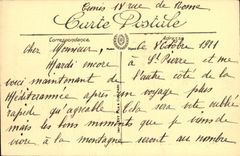 Tunis 18 rue de Rome
Carte Postale
Correspondance
Adresse
Cher Monsieur, le 8 Octobre 1911
Mardi encore à St Pierre et me
voici maintenant de l'autre côté de la
Méditerranée après un voyage plus
rapide qu'agréable. Cela sera vite oublié
mais les bons moments que je viens de
vivre à la montagne seront au nombre